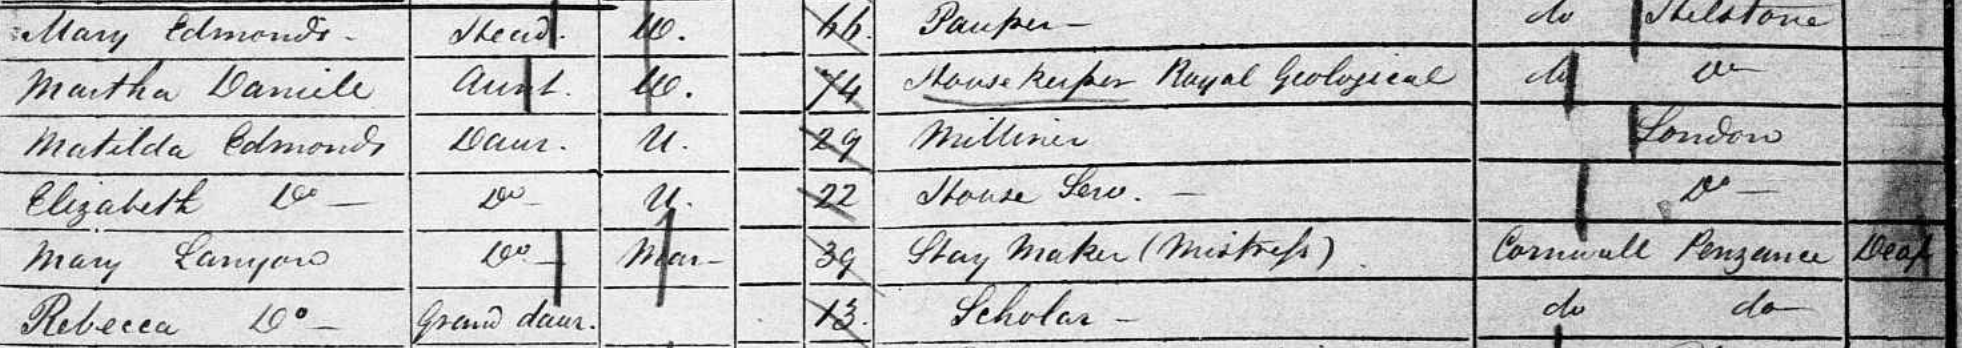 Mary Edmonds - Head. W. 66. Pauper - do Helstone
Martha Daniele Aunt. W. 74 House keeper Royal Geological do Do
Matilda Edmonds Daur. U. 29 Milliner London
Elizabeth Do - Do - U. 22 House Serv. - Do -
Mary Lanyon Do - Mar - 39 Stay Maker (Mistress) Cornwall Penzance Deaf
Rebecca Do - Grand daur. 13. Scholar - do do